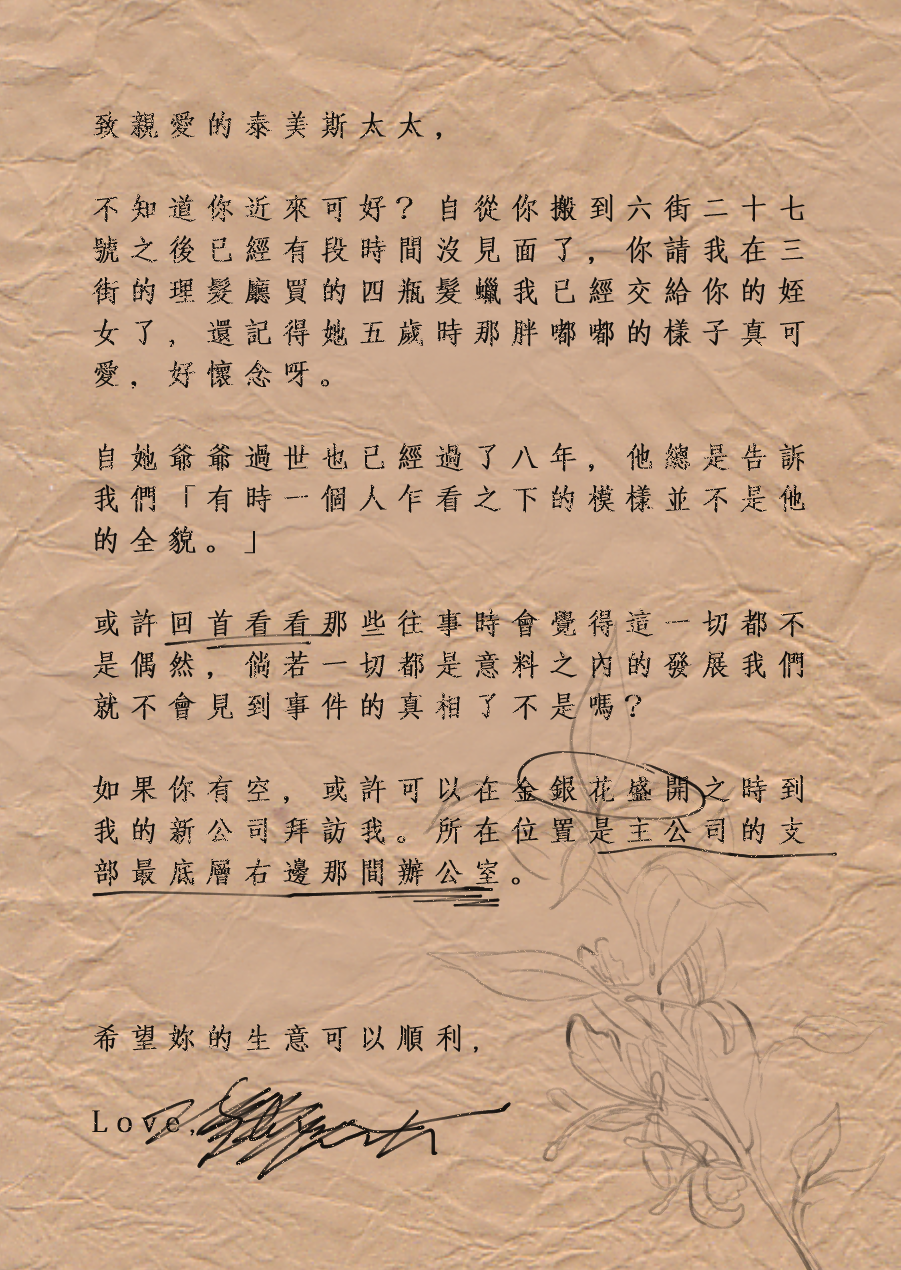 致親愛的泰美斯太太，
不知道你近來可好？自從你搬到六街二十七
號之後已經有段時間沒見面了，你請我在三
街的理髮廳買的四瓶髮蠟我已經交給你的姪
女了，還記得她五歲時那胖嘟嘟的樣子真可
愛，好懷念呀。
自她爺爺過世也已經過了八年，他總是告訴
我們「有時一個人乍看之下的模樣並不是他
的全貌。」
或許回首看看那些往事時會覺得這一切都不
是偶然，倘若一切都是意料之內的發展我們
就不會見到事件的真相了不是嗎？
如果你有空，或許可以在金銀花盛開之時到
我的新公司拜訪我。所在位置是主公司的支
部最底層右邊那間辦公室。
希望妳的生意可以順利，
Love,